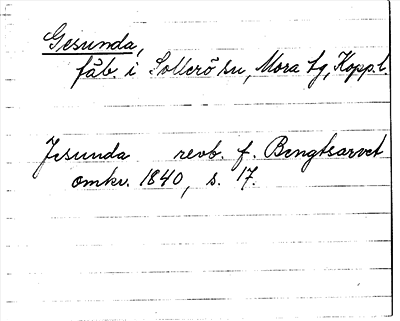 Gesunda,
fäb. i Sollerö sn, Mora tg, Kopp. l.
Jesunda revb. f. Bengtsarvet
omkr. 1840, s. 17.